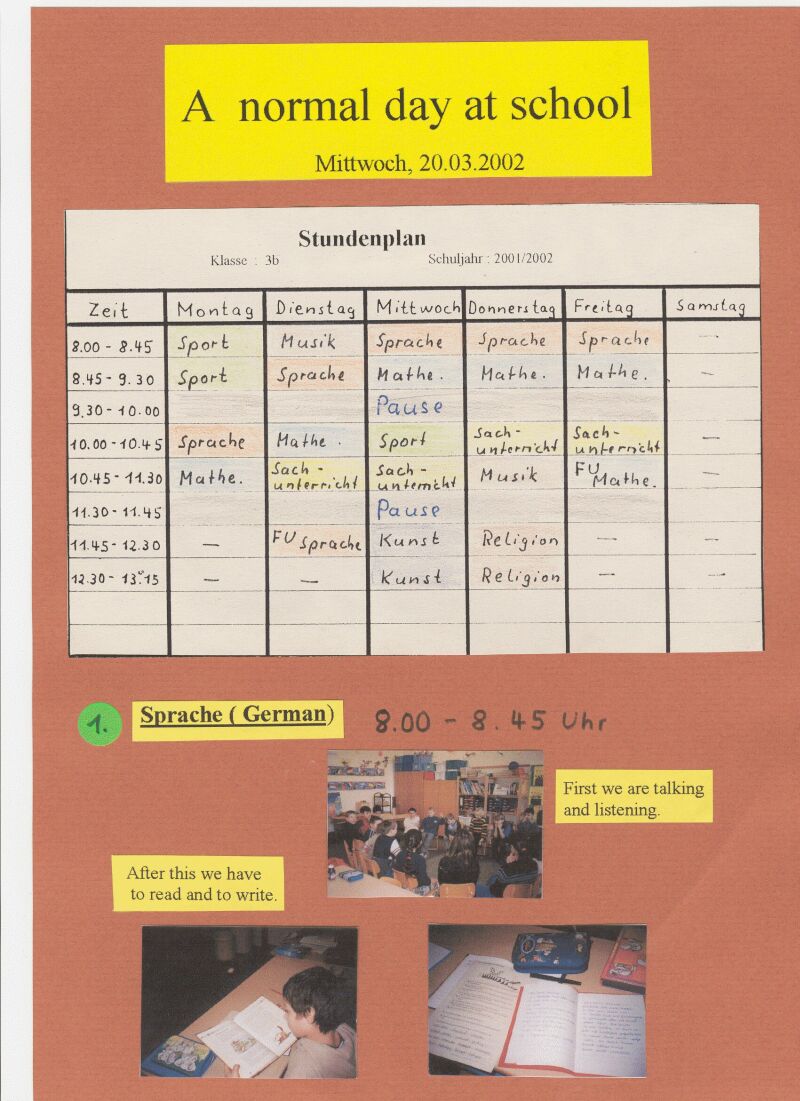 A normal day at school
Mittwoch, 20.03.2002
Stundenplan
Klasse : 3b Schuljahr : 2001/2002
Zeit Montag Dienstag Mittwoch Donnerstag Freitag Samstag
8.00 - 8.45 Sport Musik Sprache Sprache Sprache —
8.45 - 9.30 Sport Sprache Mathe. Mathe. Mathe. —
9.30 - 10.00 Pause
10.00 - 10.45 Sprache Mathe. Sport Sach-unterricht Sach-unterricht —
10.45 - 11.30 Mathe. Sach-unterricht Sach-unterricht Musik FU Mathe. —
11.30 - 11.45 Pause
11.45 - 12.30 — FU Sprache Kunst Religion — —
12.30 - 13.15 — — Kunst Religion — —
1. Sprache ( German) 8.00 - 8.45 Uhr
First we are talking
and listening.
After this we have
to read and to write.